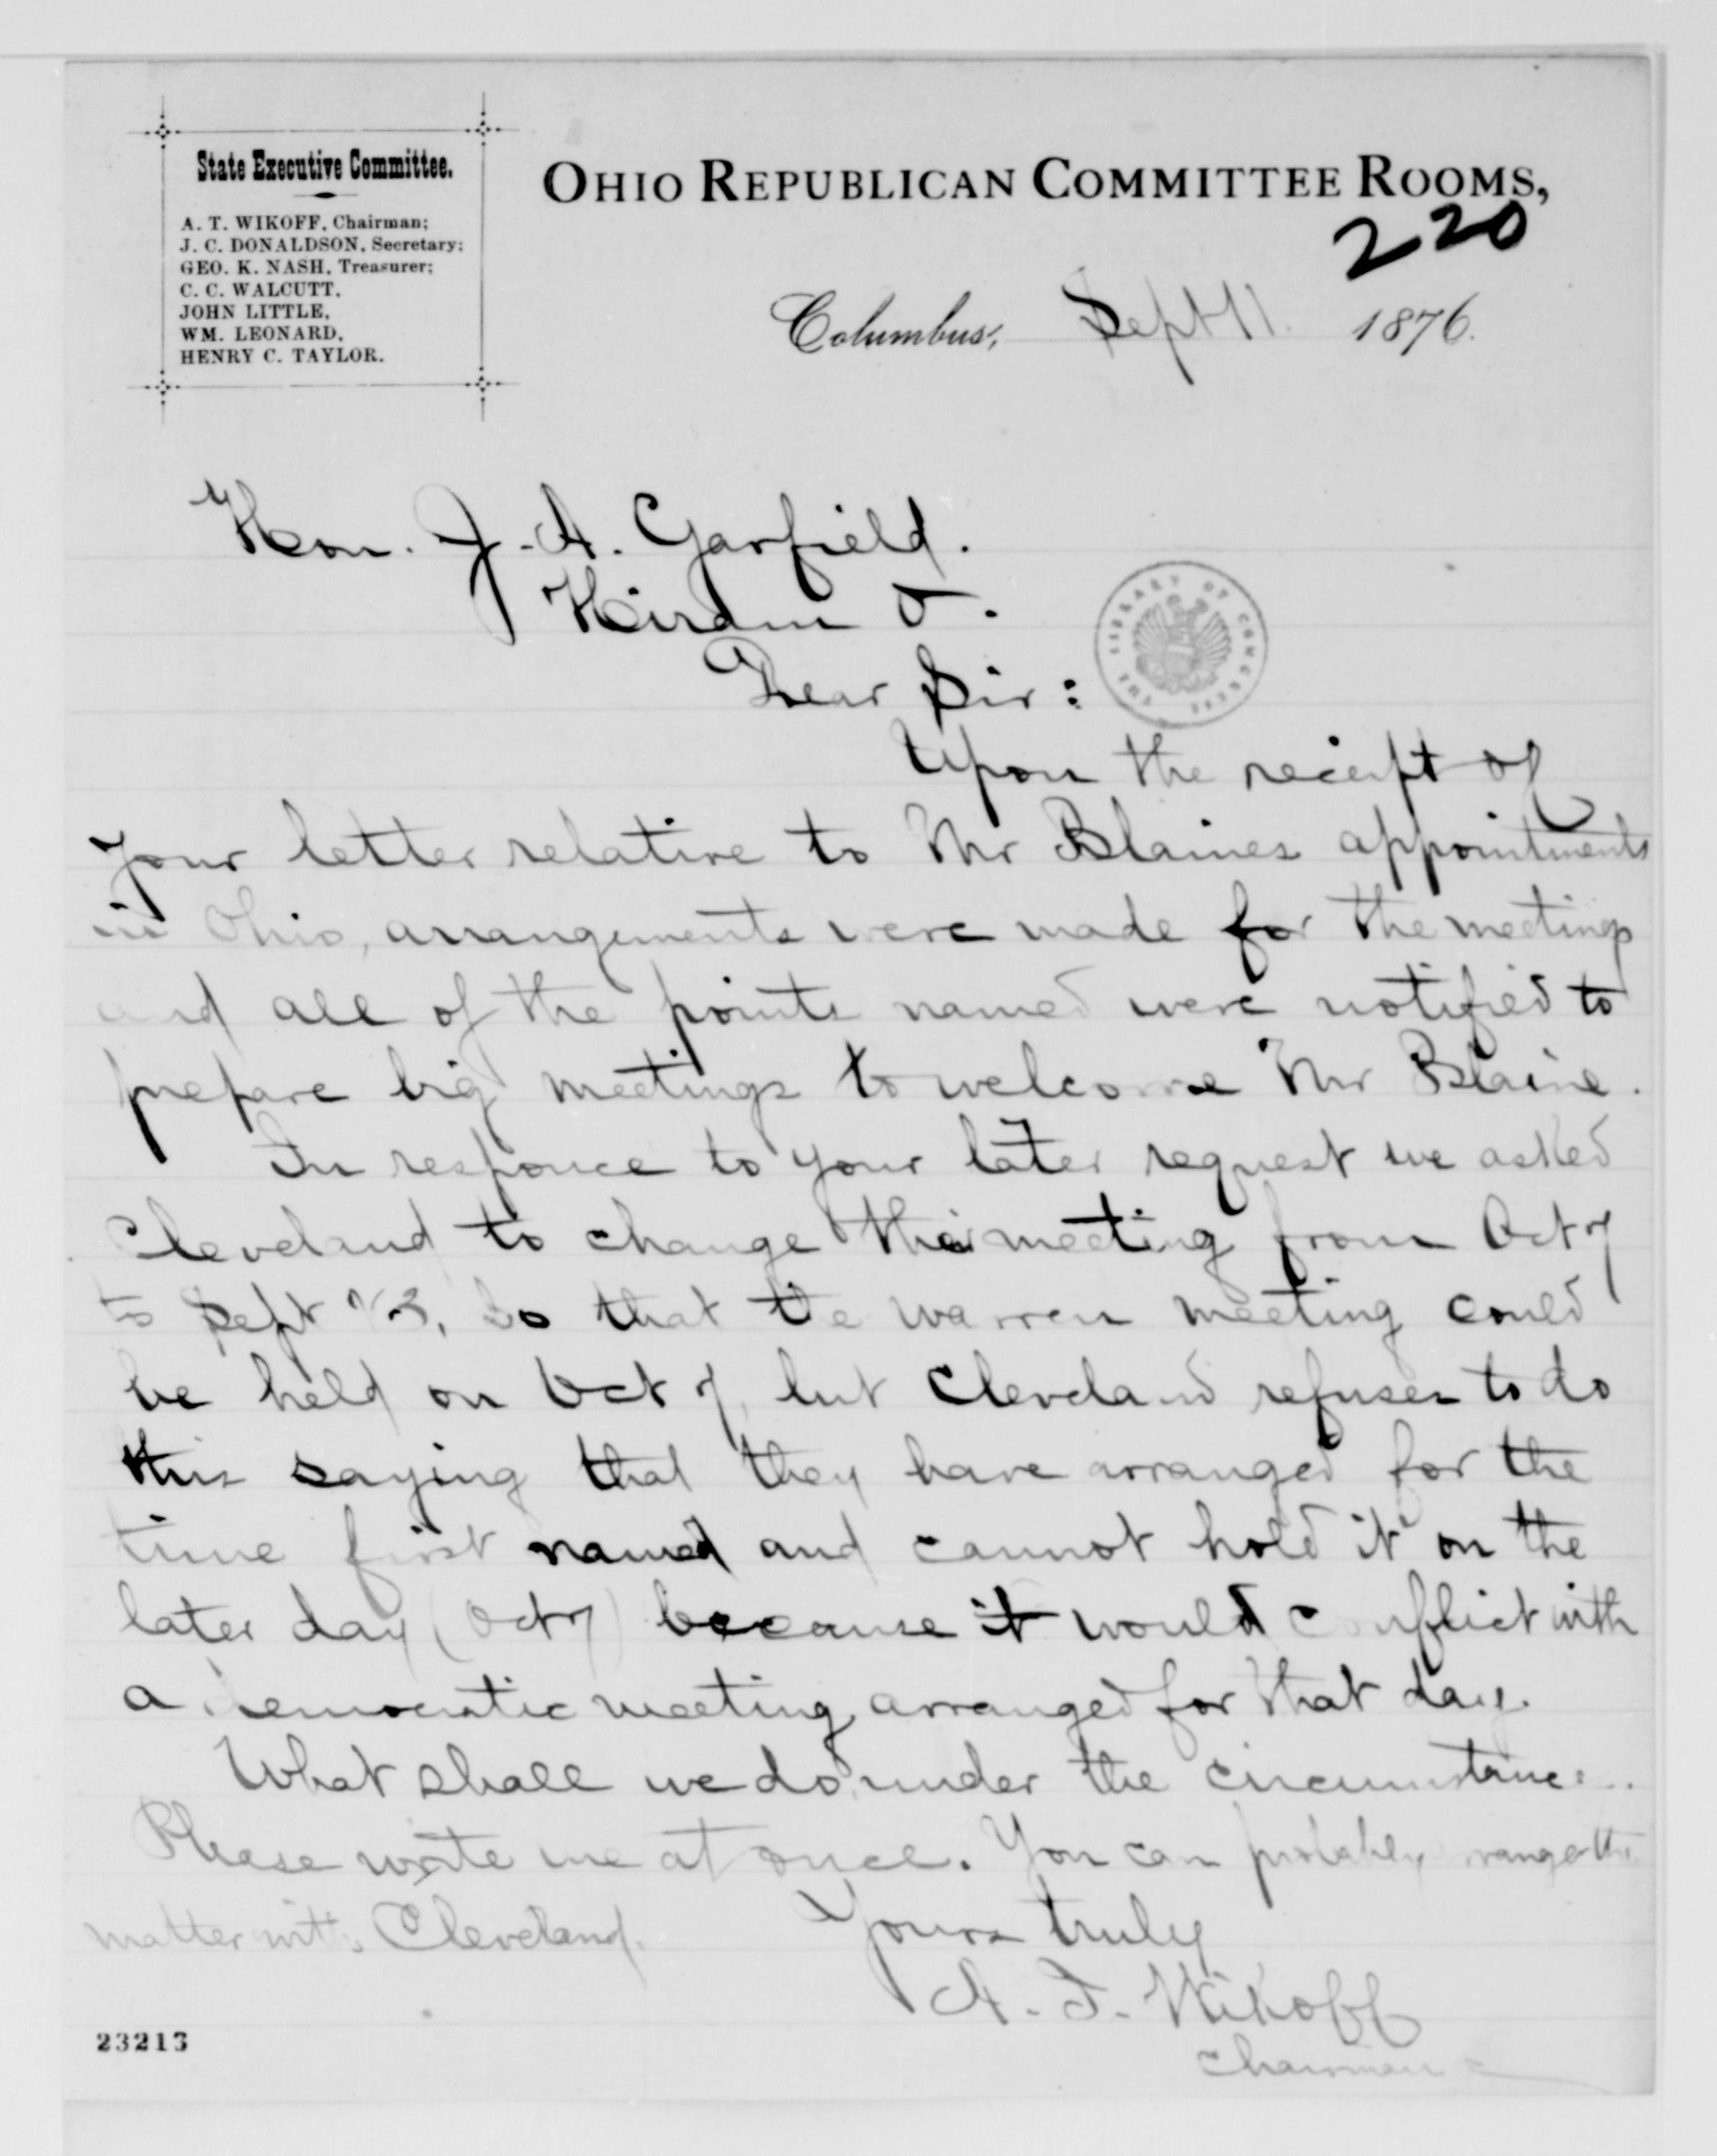 State Executive Committee.
A. T. WIKOFF, Chairman;
J. C. DONALDSON, Secretary;
GEO. K. NASH, Treasurer;
C. C. WALCUTT,
JOHN LITTLE,
WM. LEONARD,
HENRY C. TAYLOR.
OHIO REPUBLICAN COMMITTEE ROOMS,
220
Columbus, Sept 11. 1876.
Hon. J. A. Garfield.
Hiram O.
THE LIBRARY OF CONGRESS
Dear Sir:
Upon the receipt of
your letter relative to Mr Blaines appointments
in Ohio, arrangements were made for the meetings
and all of the points named were notified to
prepare big meetings to welcome Mr Blaine.
In responce to your later request we asked
Cleveland to change their meeting from Oct 7
to Sept so that the Warren meeting could
be held on Oct 7, but Cleveland refuses to do
this saying that they have arranged for the
time first named and cannot hold it on the
later day (Oct 7) because it would conflict with
a democratic meeting arranged for that day.
What shall we do under the circumstances.
Please write me at once. You can probably arrange the
matter with Cleveland.
Yours truly
A. T. Wikoff
Chairman
23213